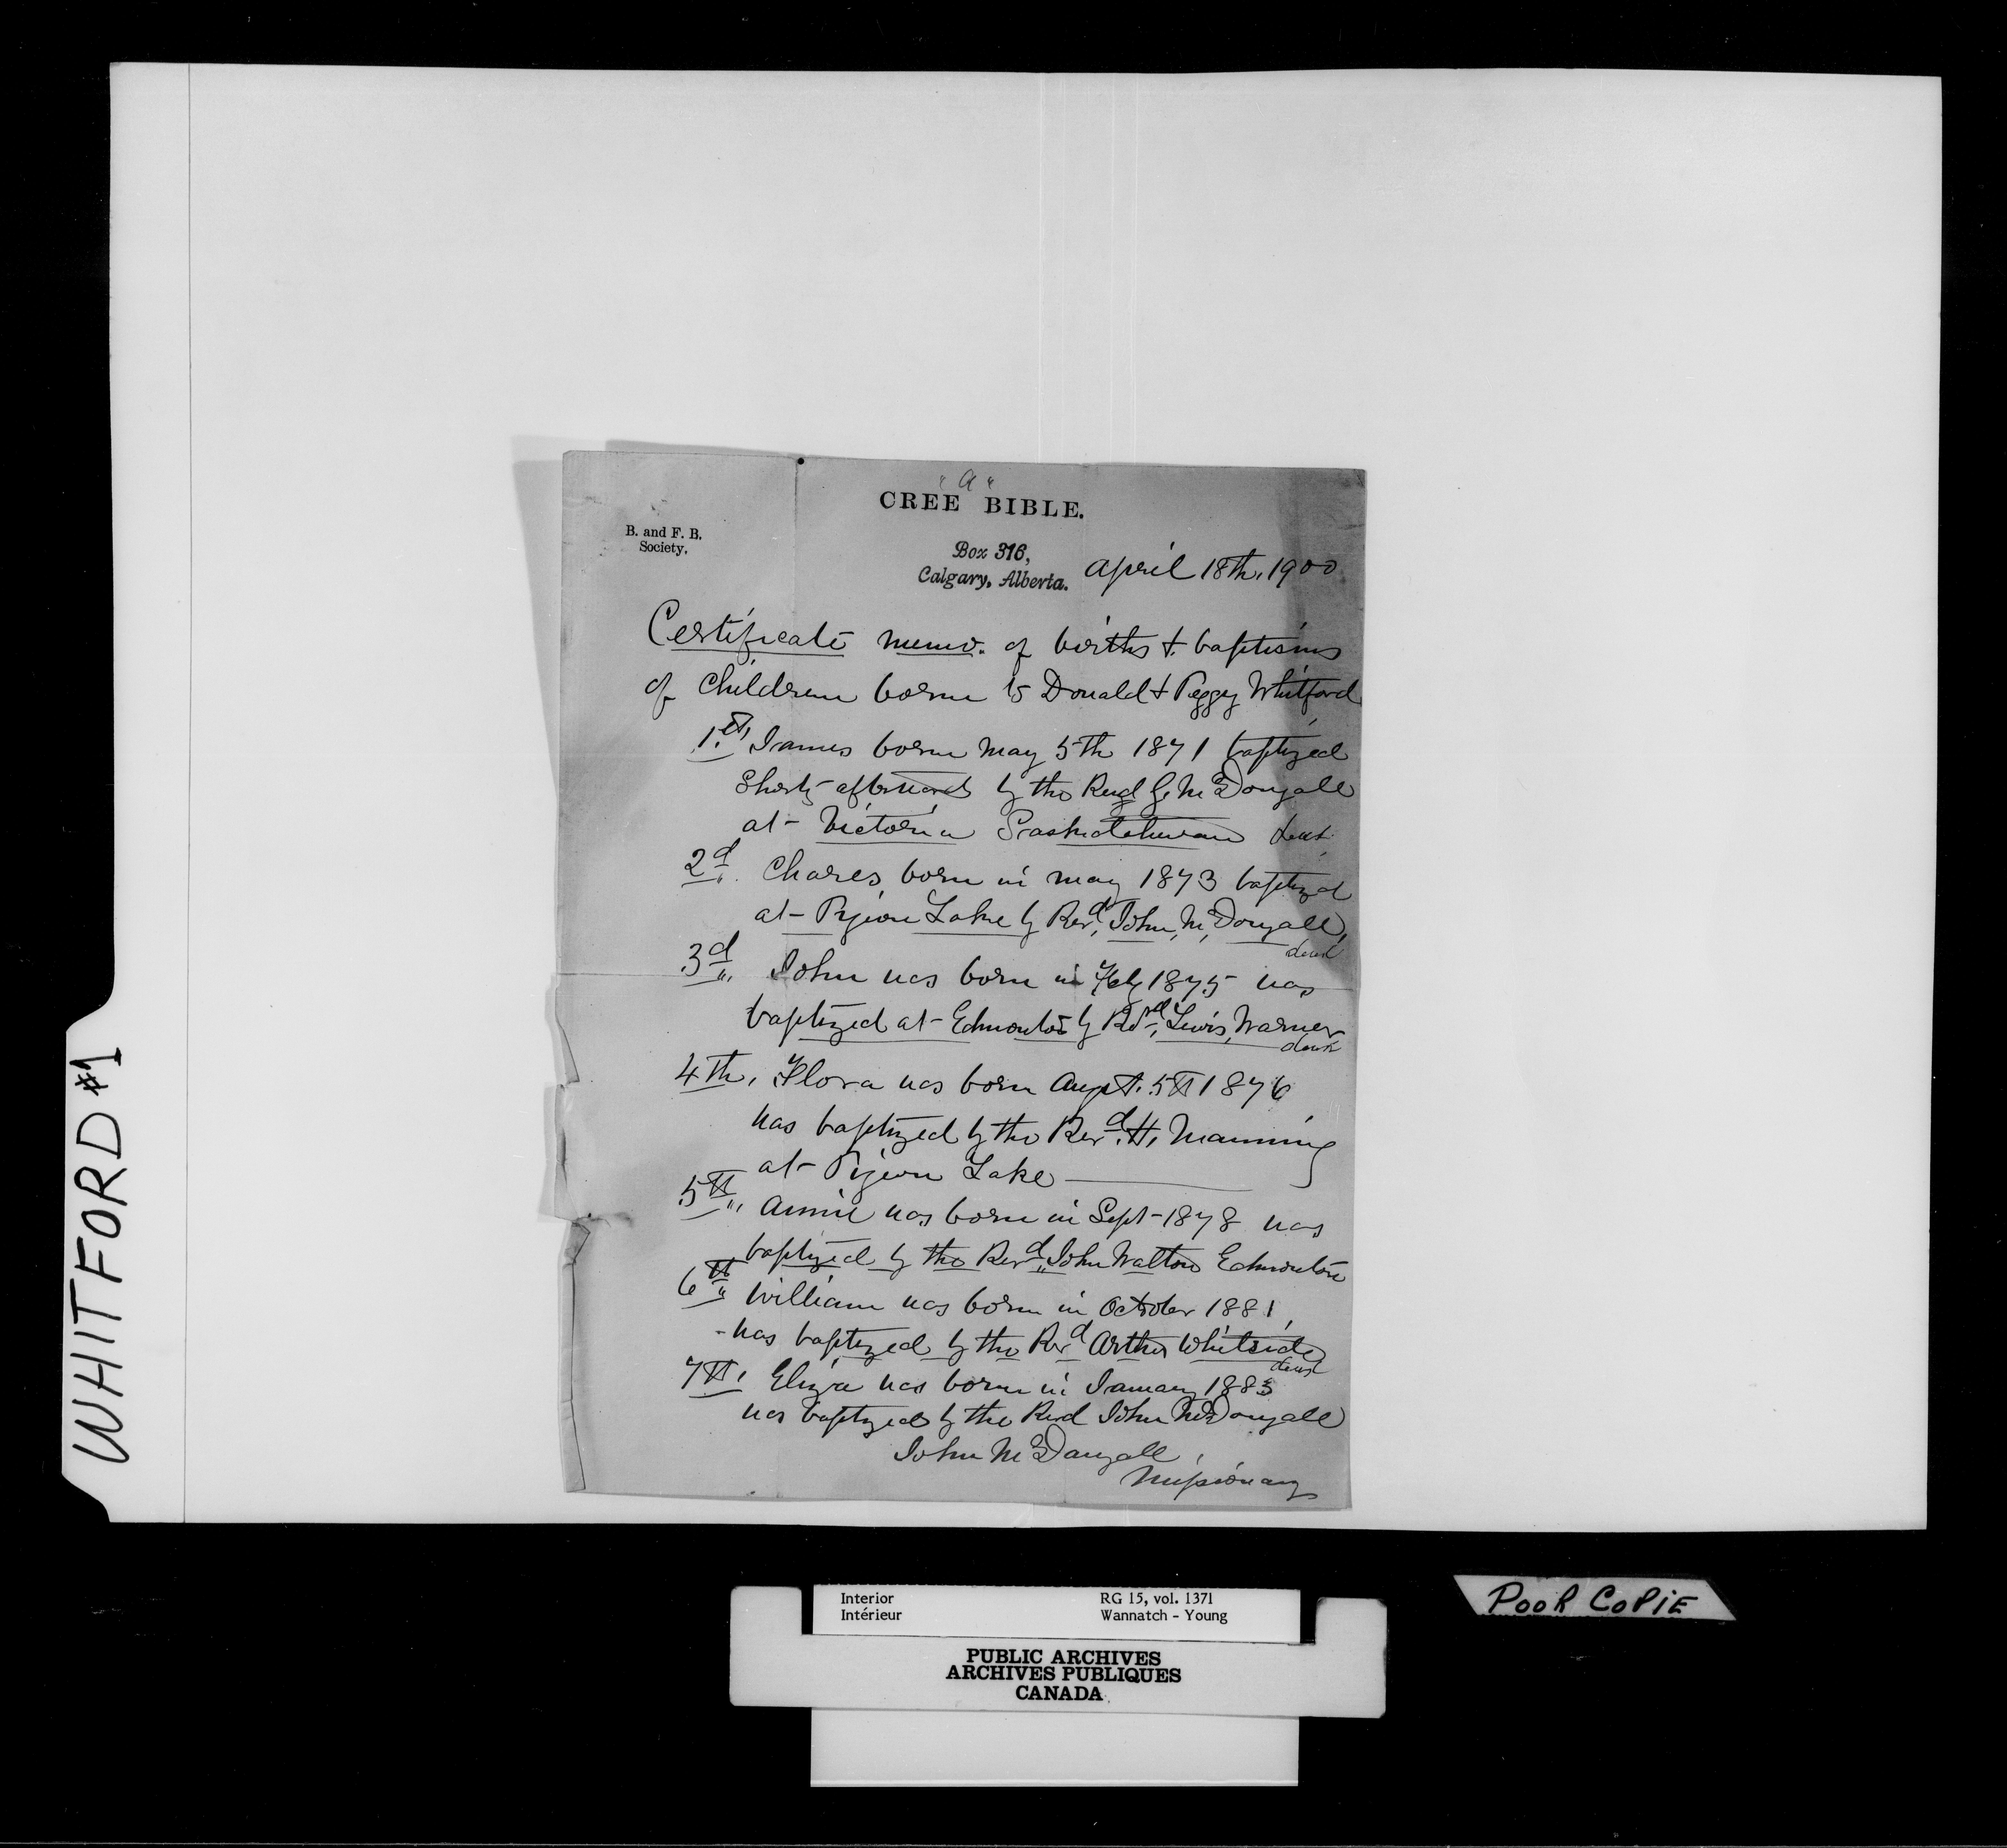 WHITFORD #1
"a"
CREE BIBLE.
B. and F. B.
Society.
Box 316,
Calgary, Alberta.
April 18th, 1900
Certificate memo. of births & baptisms
of children borne to Donald & Peggy Whitford
1.st, James borne May 5th 1871 baptized
shortly afterwards by the Revd G. McDougall
at Victoria Saskatchewan dead
2d,, Chares, borne in may 1873 baptized
at Pigeon Lake by Revd, John, Mc,Dougall,
dead
3d,, John was borne in Feby 1875 was
baptized at Edmonton by Revd, Lewis, Warner
dead
4th, Flora was born Augst. 5th 1876
was baptized by the Revd. H. Manning
at Pigeon Lake
5th,, Annie was borne in Sept 1878 was
baptized by the Revd,, John Walton Edmonton
6th,, William was borne in October 1881,
was baptized by the Revd Arthur Whiteside
dead
7th, Eliza was borne in January 1883
was baptized by the Revd John McDougall
John McDougall,
Missionary
Interior
Intérieur
RG 15, vol. 1371
Wannatch - Young
PUBLIC ARCHIVES
ARCHIVES PUBLIQUES
CANADA
POOR COPIE